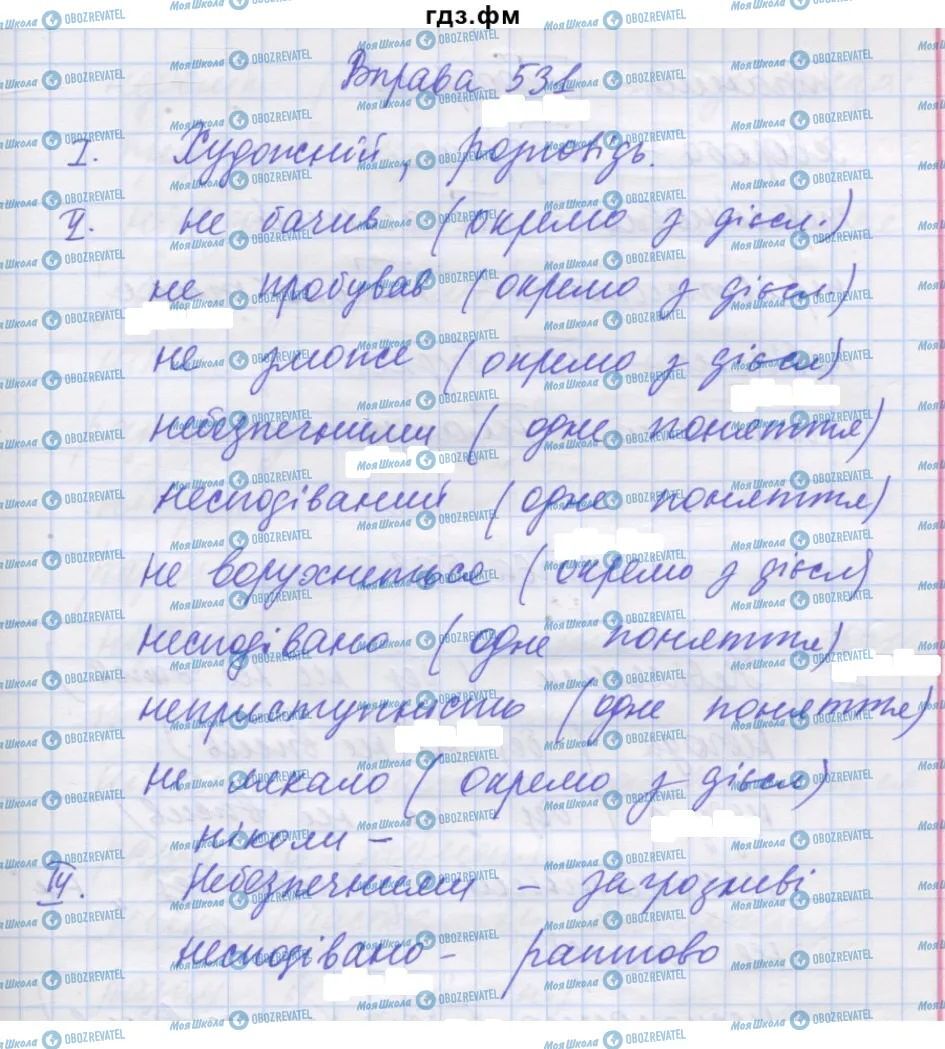 гдз.фм
Вправа 531
I. Художній, розповідь.
II. не бачив (окремо з дієсл.)
не пробував (окремо з дієсл.)
не зможе (окремо з дієсл)
небезпечними (одне поняття)
несподіваний (одне поняття)
не ворухнеться (окремо з дієсл)
несподівано (одне поняття)
неприступність (одне поняття)
не лякало (окремо з дієсл)
ніколи –
IV. Небезпечними – загрозливі
несподівано – раптово
МОЯ ШКОЛА OBOZREVATEL